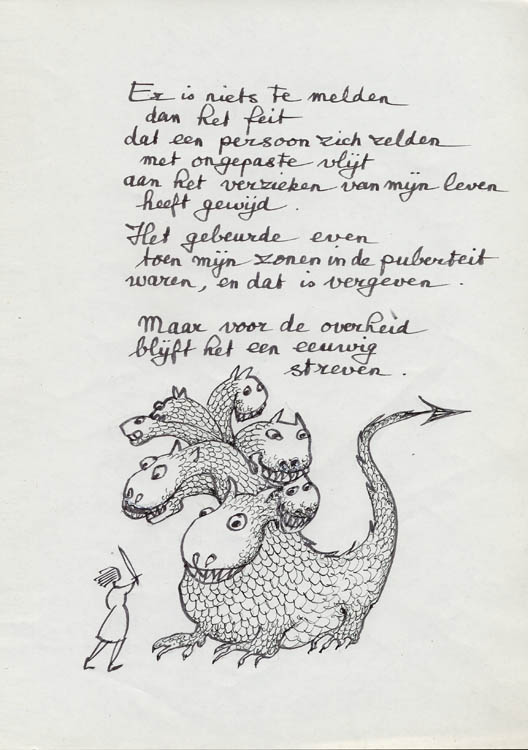 Er is niets te melden
dan het feit
dat een persoon zich zelden
met ongepaste vlijt
aan het verzieken van mijn leven
heeft gewijd.
Het gebeurde even
toen mijn zonen in de puberteit
waren, en dat is vergeven.
Maar voor de overheid
blijft het een eeuwig
streven.